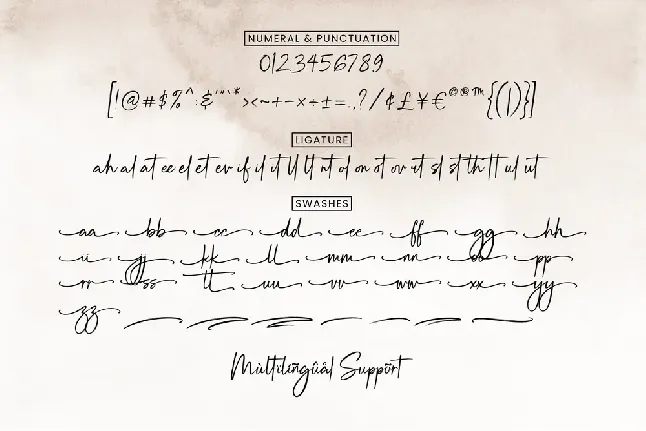 NUMERAL & PUNCTUATION
0123456789
[!@#$%^:&'"'\*><~+-×÷±=..?/¢£¥€©®™{(|)}]
LIGATURE
ah al at ee el et ev if il it lf ll nt ol on ot ov rt sf st th tt ul ut
SWASHES
aa bb cc dd ee ff gg hh
ii jj kk ll mm nn oo pp
rr ss tt uu vv ww xx yy
zz
Múltílingûål Suppört